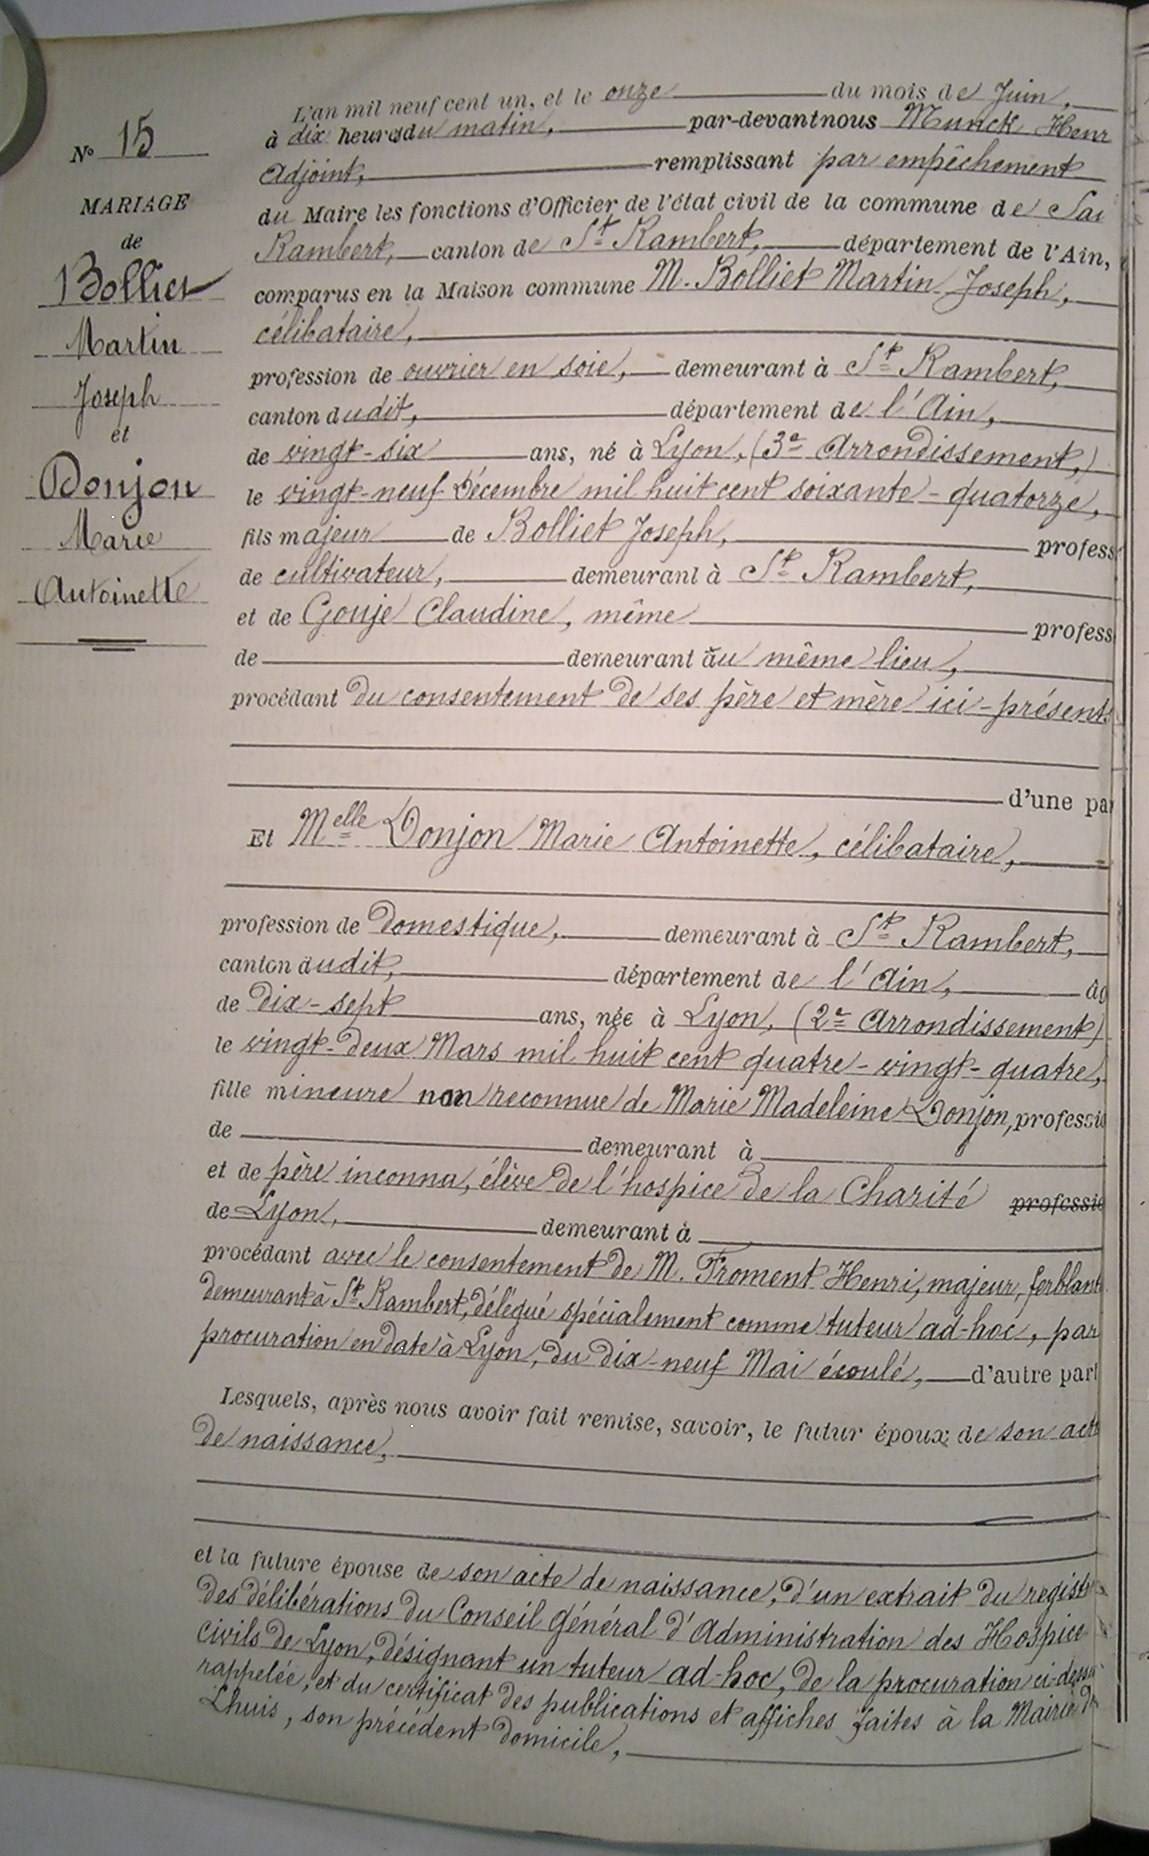 N° 15
MARIAGE
de
Bolliet
Martin
Joseph
et
Donjon
Marie
Antoinette
L'an mil neuf cent un, et le onze du mois de Juin,
à dix heures du matin, par-devant nous Munck Henr
Adjoint, remplissant par empêchement
du Maire les fonctions d'Officier de l'état civil de la commune de Sai
Rambert, canton de St Rambert, département de l'Ain,
comparus en la Maison commune M. Bolliet Martin Joseph,
célibataire,
profession de ouvrier en soie, demeurant à St Rambert,
canton dudit, département de l'Ain,
de vingt-six ans, né à Lyon, (3e Arrondissement,)
le vingt-neuf Décembre mil huit cent soixante-quatorze,
fils majeur de Bolliet Joseph, profess
de cultivateur, demeurant à St Rambert,
et de Gouje Claudine, même profess
de demeurant au même lieu,
procédant du consentement de ses père et mère ici-présents
d'une par
Et Melle Donjon Marie Antoinette, célibataire,
profession de domestique, demeurant à St Rambert,
canton dudit, département de l'Ain, âg
de dix-sept ans, née à Lyon, (2e Arrondissement)
le vingt-deux Mars mil huit cent quatre-vingt-quatre,
fille mineure non reconnue de Marie Madeleine Donjon, professio
de demeurant à
et de père inconnu, élève de l'hospice de la Charité professio
de Lyon, demeurant à
procédant avec le consentement de M. Froment Henri, majeur, ferblant
demeurant à St Rambert, délégué spécialement comme tuteur ad-hoc, par
procuration en date à Lyon, du dix-neuf Mai écoulé, d'autre part
Lesquels, après nous avoir fait remise, savoir, le futur époux de son acte
de naissance,
et la future épouse de son acte de naissance, d'un extrait du registr
des délibérations du Conseil Général d'Administration des Hospice
civils de Lyon, désignant un tuteur ad-hoc, de la procuration ci-dessu
rappelée, et du certificat des publications et affiches faites à la Mairie d
Lhuis, son précédent domicile,